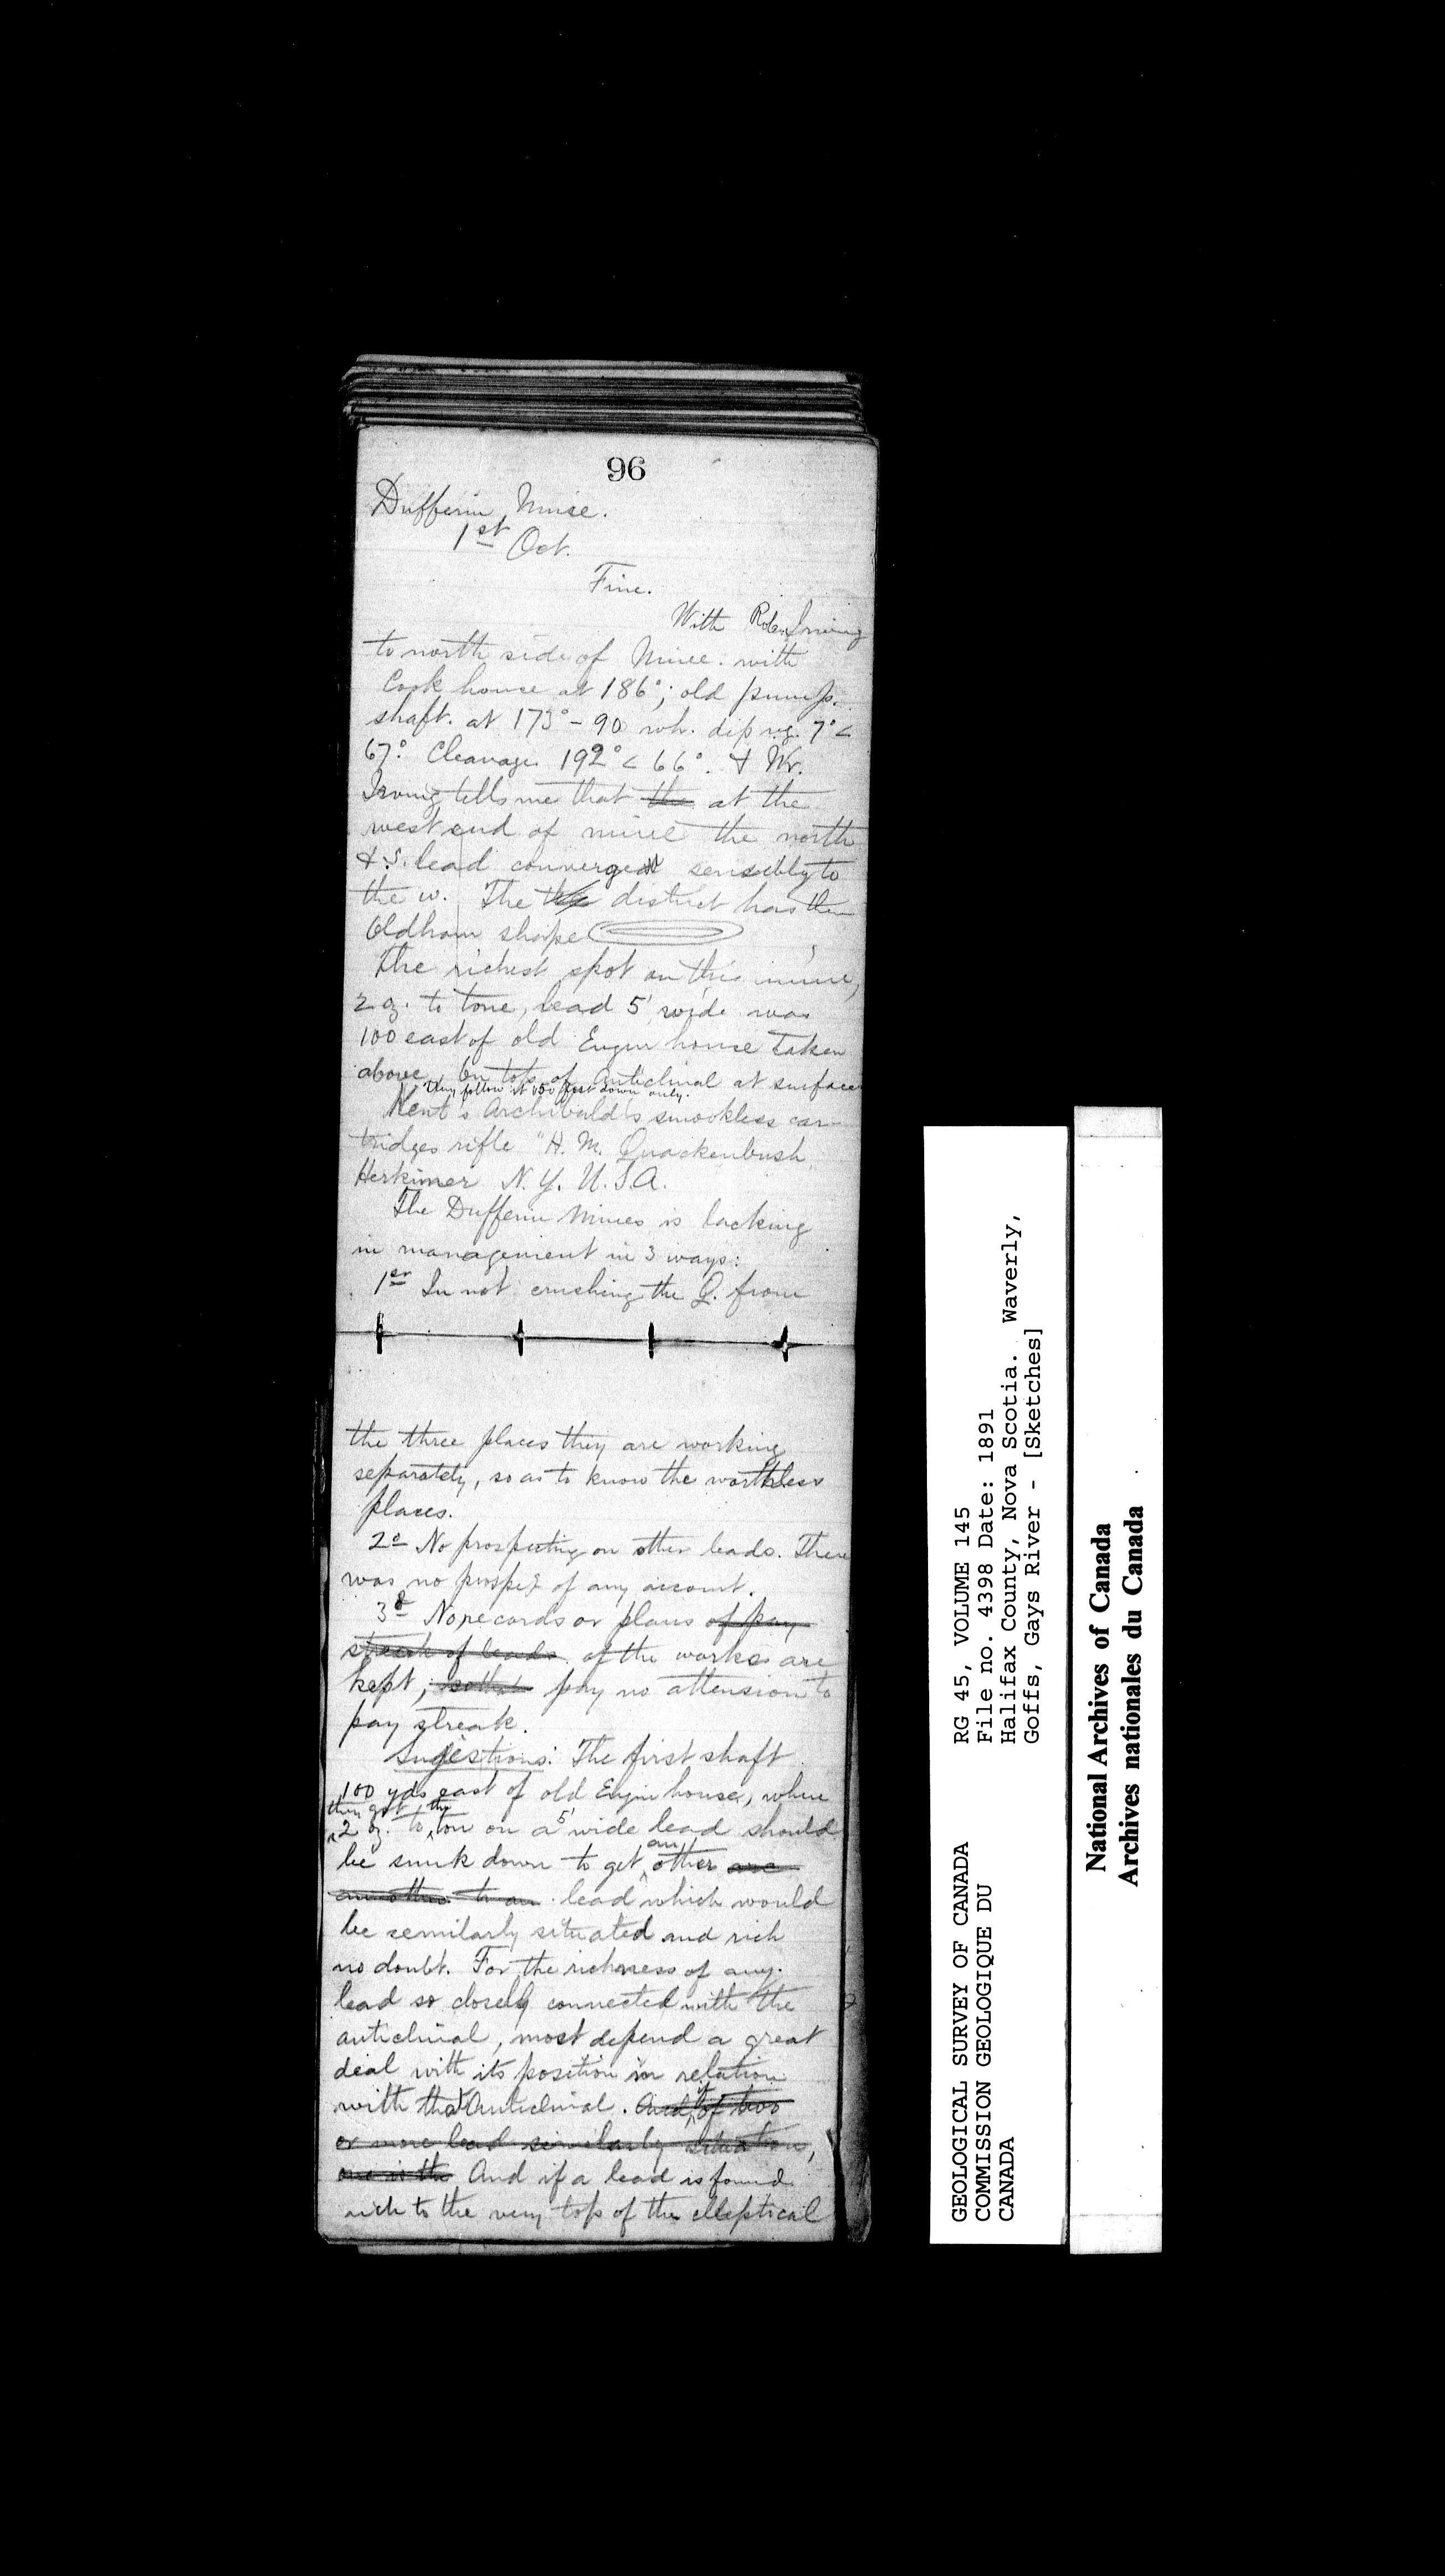 96
Dufferin Mine.
1st Oct.
Fine.
With Robn Irving
to north side of Mine. with
Cook house at 186°; old pump.
shaft. at 173° - 90 wh. dip vg. 7° <
67° Cleavage 192° < 66°. & Wr.
Irving tells me that the at the
west end of mine the north
& S. lead converged sensibly to
the w. The the district has the
Oldham shape
The richest spot on this mine,
2 oz. to tone, lead 5' wide was
100 east of old Engin house taken
above, on tops of Anticlinal at surface
They follow it 150 feet down only.
Kent's Archibald's smookless car-
tridges rifle "H. M. Quackenbush
Herkimer N.Y. U.S.A.
The Dufferin Mines is lacking
in management in 3 ways:
1er In not crushing the Q. from
the three places they are working
separately, so as to know the worthless
places.
2e No prospecting on other leads. There
was no prospet of any account.
3d No records or plans of pay
streak of leads of the works are
kept, so that pay no attension to
pay streak.
Sugestions: The first shaft
100 yds east of old Engin house, where
they got the
2 oz. to ton on a 5' wide lead should
be sunk down to get an other one
an other to an lead which would
be semilarly situated and rich
no doubt. For the richness of any
lead so closely connected with the
anticlinal, most depend a great
deal with its position in relation
with that Anticlinal. And, if of two
or more lead similarly situation,
one is the And if a lead is found
rich to the very top of the elleptical
GEOLOGICAL SURVEY OF CANADA
COMMISSION GEOLOGIQUE DU
CANADA
RG 45, VOLUME 145
File no. 4398 Date: 1891
Halifax County, Nova Scotia. Waverly,
Goffs, Gays River - [Sketches]
National Archives of Canada
Archives nationales du Canada